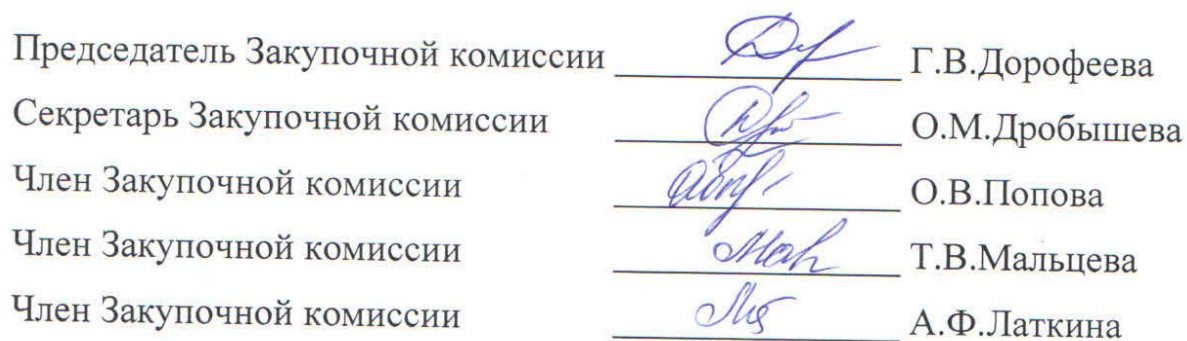 Председатель Закупочной комиссии Г.В.Дорофеева
Секретарь Закупочной комиссии О.М.Дробышева
Член Закупочной комиссии О.В.Попова
Член Закупочной комиссии Т.В.Мальцева
Член Закупочной комиссии А.Ф.Латкина